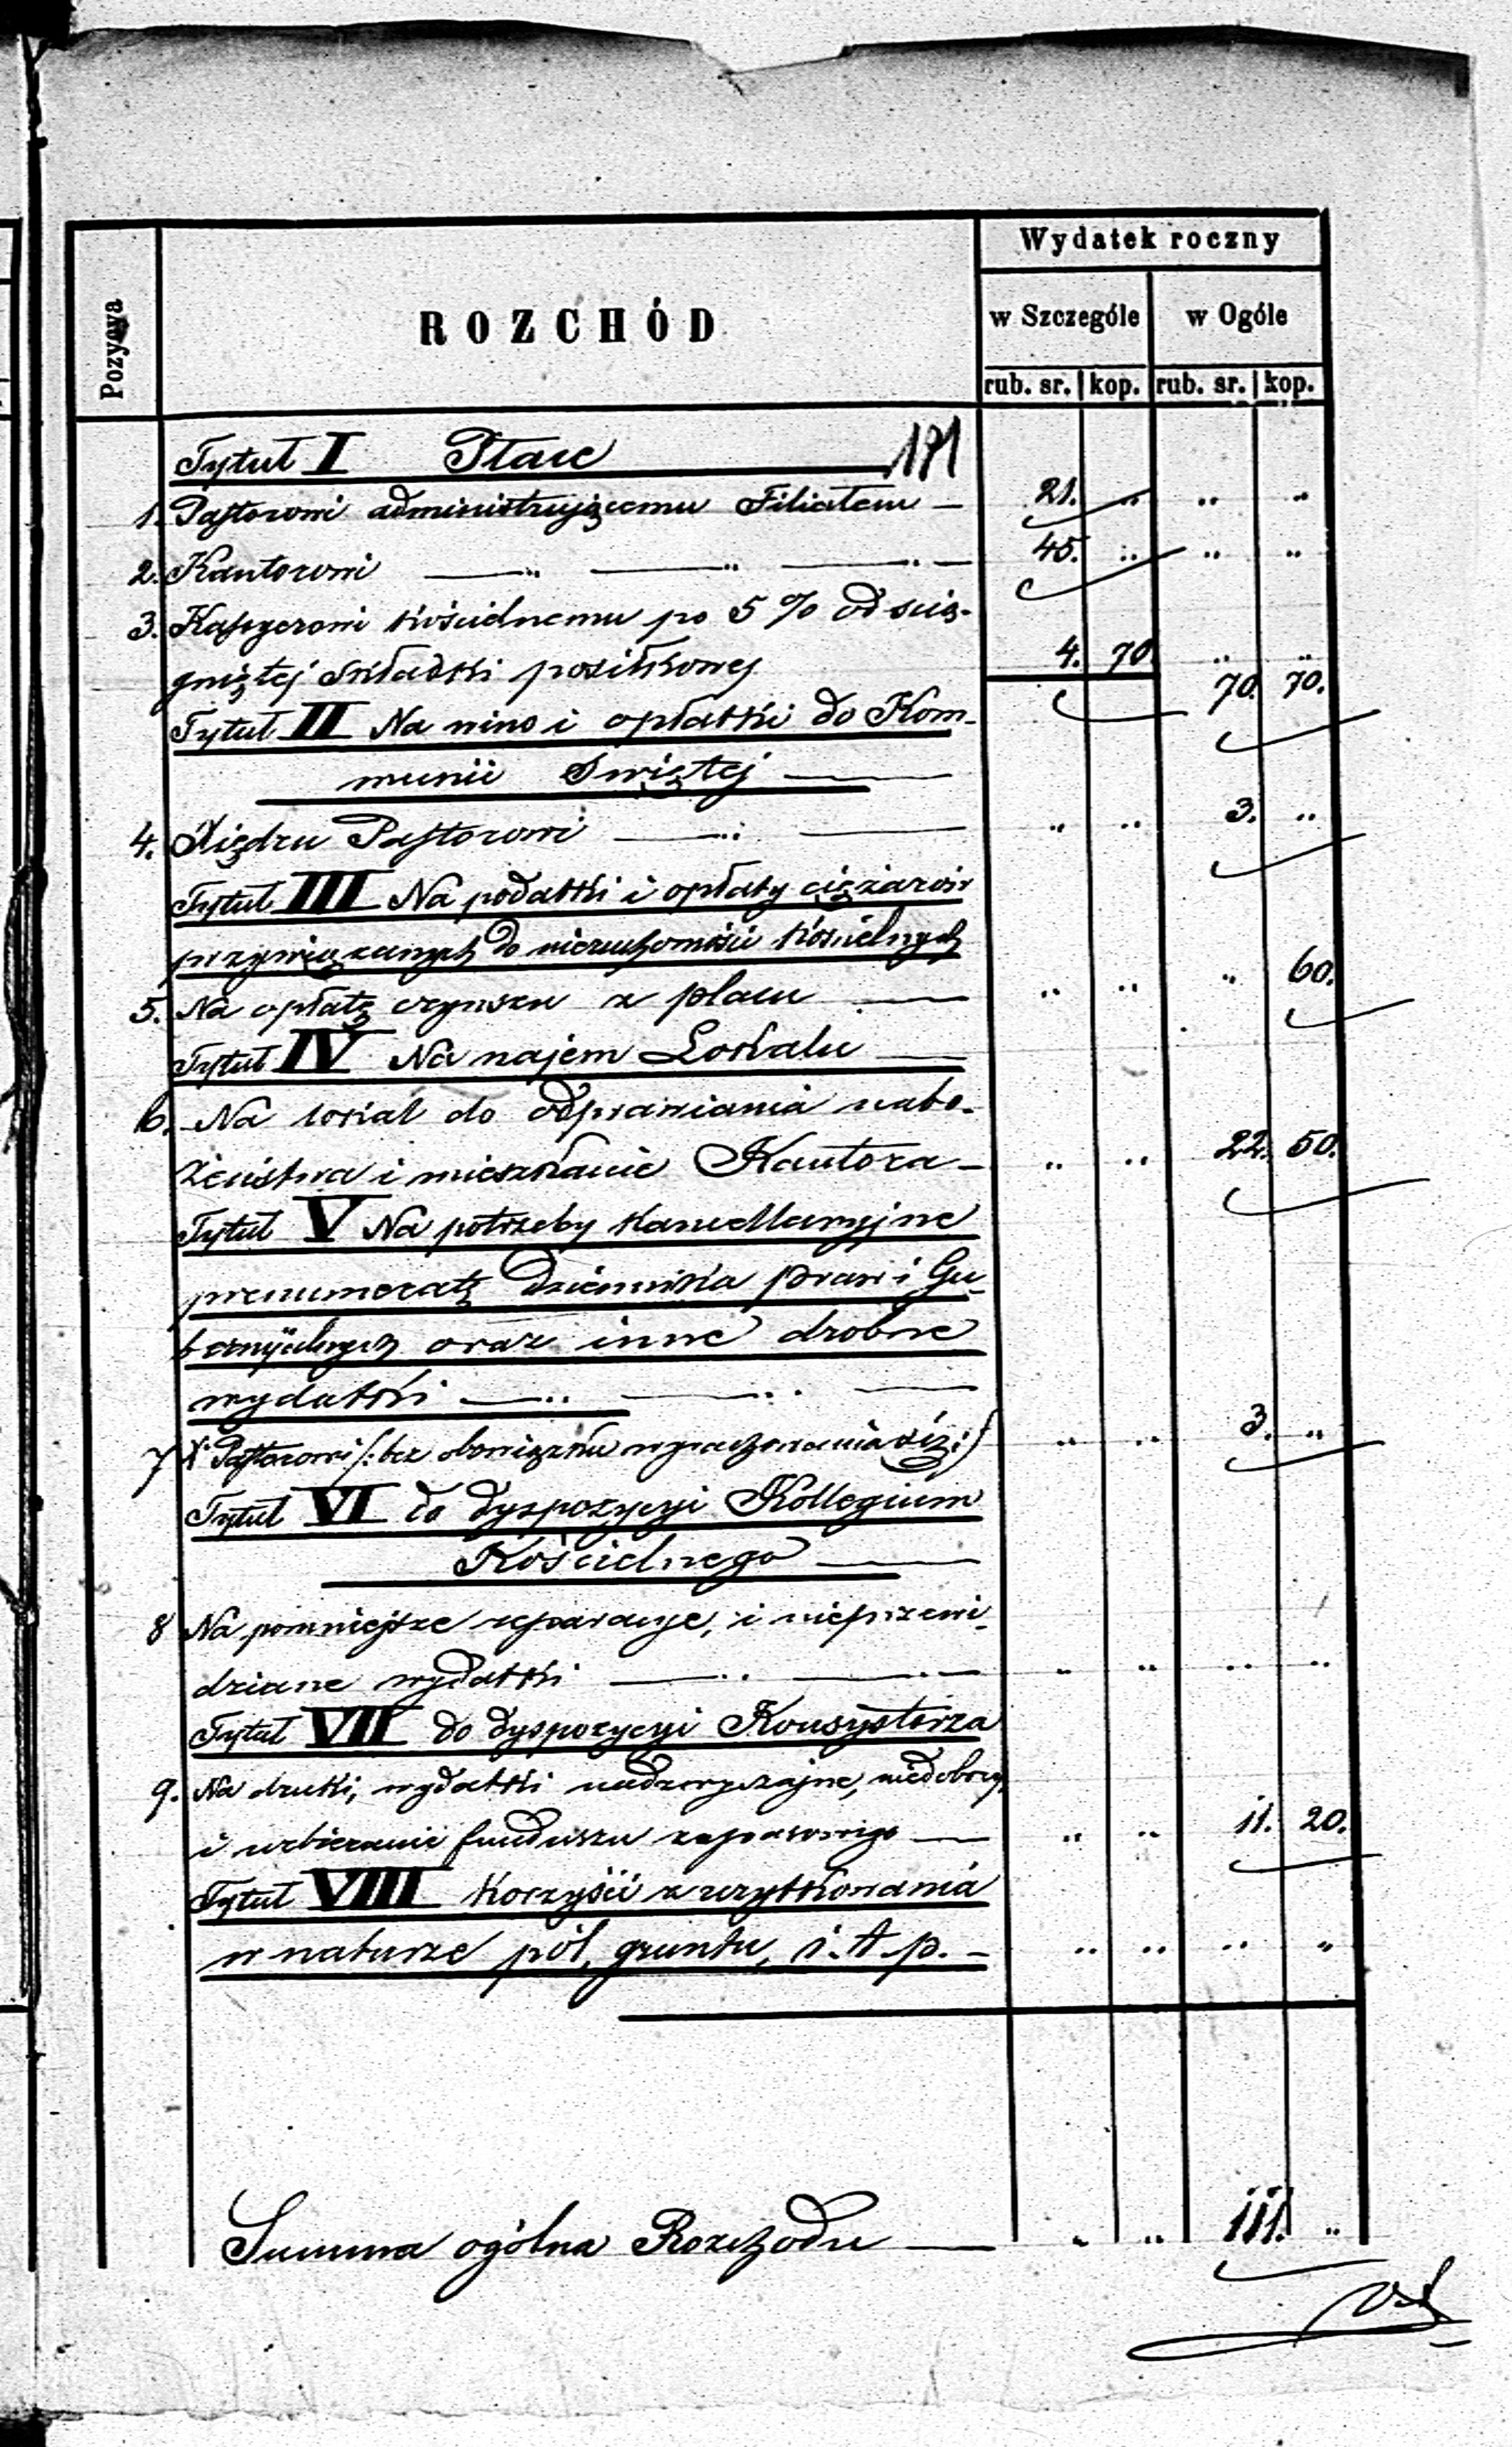 Wydatek roczny
Pozycya
ROZCHÓD
w Szczególe w Ogóle
rub. sr. kop. rub. sr. kop.
Tytuł I Płace 191
1. Pastorowi administrującemu Filiałem — 21. " " "
2. Kantorowi — " — " — " — 45. " " "
3. Kassyerowi kościelnemu po 5 % od ścią-
gniętej składki posiłkowej 4. 70. " "
70. 70.
Tytuł II Na wino i opłatki do Kom-
munii Swiętej —
4. Xiędzu Pastorowi — " — " " 3. "
Tytuł III Na podatki i opłaty ciężarów
przywiązanych do nieruchomości kościelnych
5. Na opłatę czynszu z placu — " " " 60.
Tytuł IV Na najem Lokalu —
6. Na lokal do odprawiania nabo-
żeństwa i mieszkanie Kantora — " " 22. 50.
Tytuł V Na potrzeby kancellaryjne
prenumeratę Dziennika Praw i Gu-
bernyalnych oraz inne drobne
wydatki — " — " —
7 X. Pastorowi /: bez obowiązku wyrachowania się :/ " " 3. "
Tytuł VI do dyspozycyi Kollegium
Kościelnego —
8 Na pomniejsze reparacye, i nieprzewi-
dziane wydatki — " — " — " " " "
Tytuł VII do dyspozycyi Konsystorza
9. Na druki, wydatki nadzwyczajne, niedobory
i uzbieranie funduszu zapasowego — " " 11. 20.
Tytuł VIII Korzyści z użytkowania
w naturze pól, gruntu, i. t. p. — " " " "
Summa ogólna Rozchodu — " " 111. "